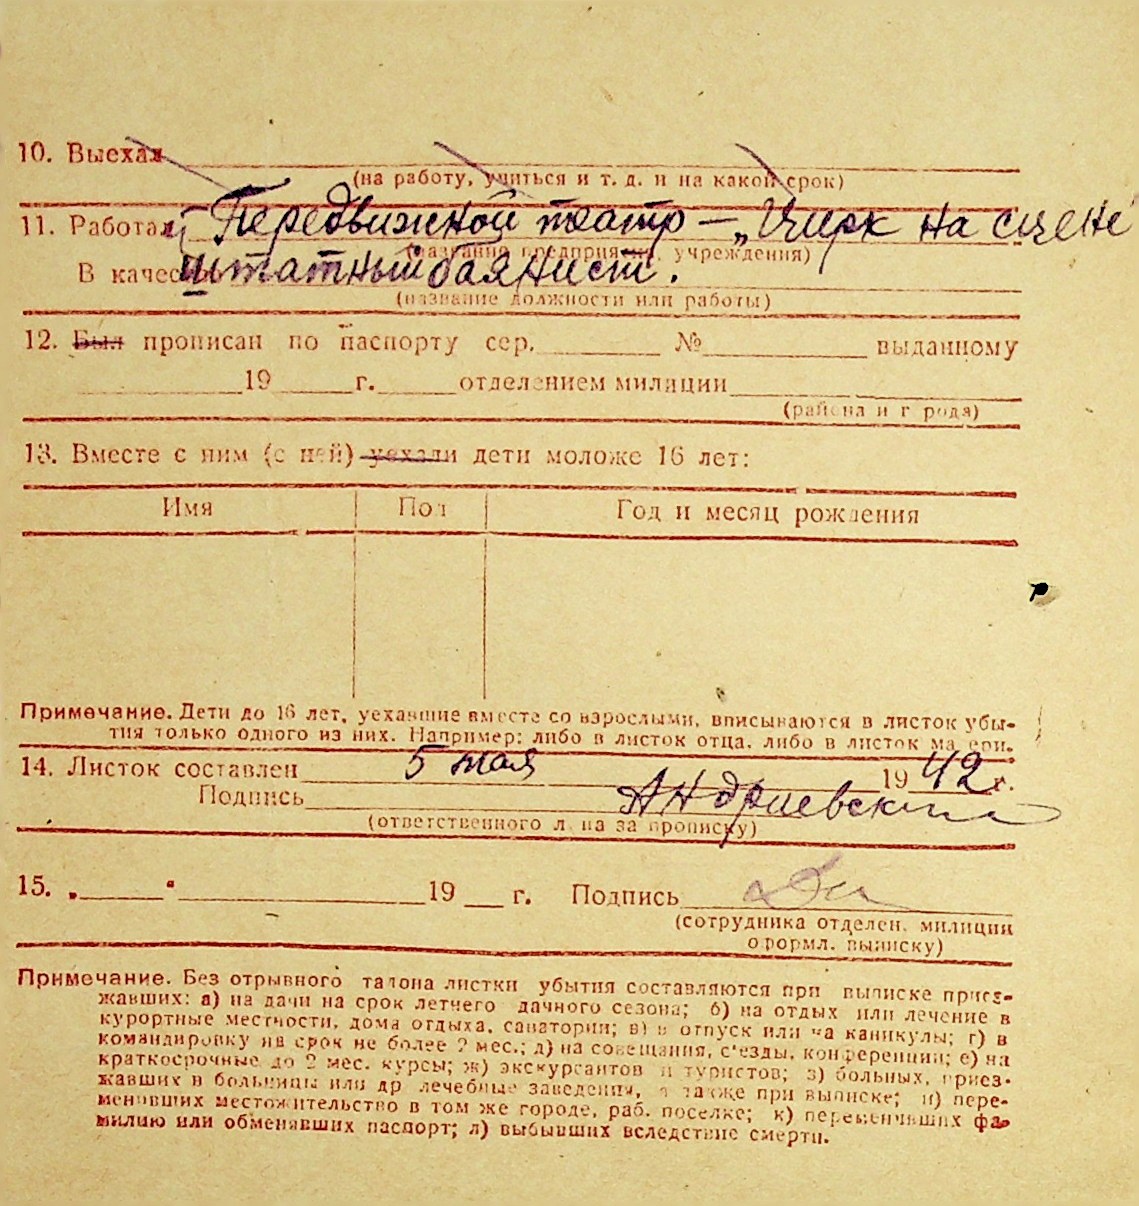 10. Выехал
(на работу, учиться и т. д. и на какой срок)
11. Работал Передвижной театр – „Цирк на сцене
(название предприятия, учреждения)
В качестве штатный баянист.
(название должности или работы)
12. Был прописан по паспорту сер. № выданному
19 г. отделением милиции
(района и города)
13. Вместе с ним (с ней) уехали дети моложе 16 лет:
Имя Пол Год и месяц рождения
Примечание. Дети до 16 лет, уехавшие вместе со взрослыми, вписываются в листок убы-
тия только одного из них. Например: либо в листок отца, либо в листок матери.
14. Листок составлен 5 мая 1942 г.
Подпись Андриевский
(ответственного лица за прописку)
15. „ “ 19 г. Подпись
(сотрудника отделен. милиции
оформл. выписку)
Примечание. Без отрывного талона листки убытия составляются при выписке приез-
жавших: а) на дачи на срок летнего дачного сезона; б) на отдых или лечение в
курортные местности, дома отдыха, санатории; в) в отпуск или на каникулы; г) в
командировку на срок не более 2 мес.; д) на совещания, с'езды, конференции; е) на
краткосрочные до 2 мес. курсы; ж) экскурсантов и туристов; з) больных, приез-
жавших в больницы или др лечебные заведения, а также при выписке; и) пере-
менивших местожительство в том же городе, раб. поселке; к) переменивших фа-
милию или обменявших паспорт; л) выбывших вследствие смерти.